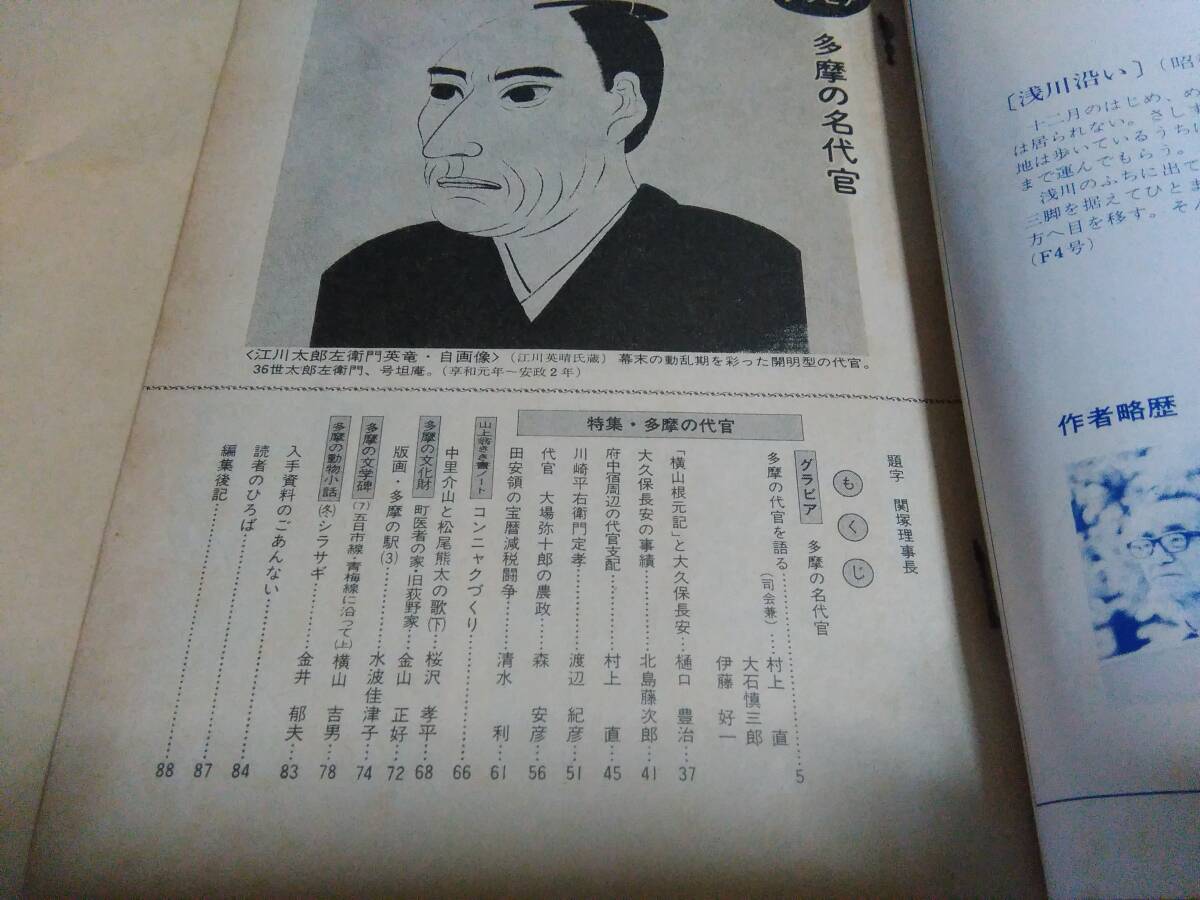 多摩の名代官
〈江川太郎左衛門英竜・自画像〉(江川英晴氏蔵) 幕末の動乱期を彩った開明型の代官。
36世太郎左衛門、号坦庵。(享和元年〜安政2年)
題字 関塚理事長
もくじ
グラビア 多摩の名代官
特集・多摩の代官
多摩の代官を語る……5
(司会兼) 村上 直
大石慎三郎
伊藤 好一
「横山根元記」と大久保長安…樋口 豊治…37
大久保長安の事績……北島藤次郎…41
府中宿周辺の代官支配……村上 直…45
川崎平右衛門定孝……渡辺 紀彦…51
代官 大場弥十郎の農政……森 安彦…56
田安領の宝暦減税闘争……清水 利…61
コンニャクづくり……66
中里介山と松尾熊太の歌(下)…桜沢 孝平…68
多摩の文化財 町医者の家・旧荻野家…金山 正好…72
版画・多摩の駅(3)……水波佳津子…74
多摩の文学碑 (7)五日市線・青梅線に沿って(上) 横山 吉男…78
多摩の動物小話 (冬)シラサギ……金井 郁夫…83
入手資料のごあんない……84
読者のひろば……87
編集後記……88
[浅川沿い](昭
十二月のはじめ、め
は居られない。さしず
地は歩いているうちに
まで運んでもらう。
浅川のふちに出て
三脚を据えてひとま
方へ目を移す。そん
(F4号)
作者略歴